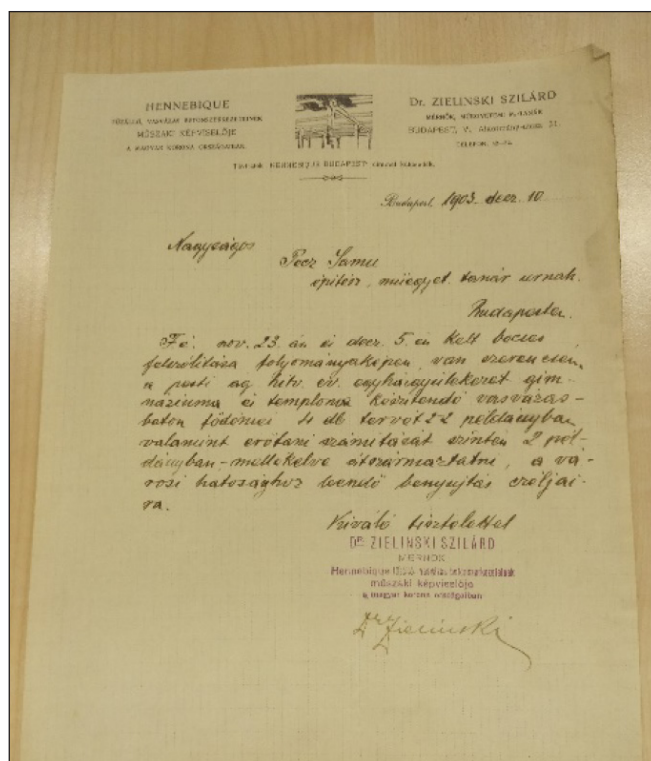 HENNEBIQUE
MŰSZAKI KÉPVISELŐJE
A MAGYAR KORONA ORSZÁGAIBAN
Dr. ZIELINSKI SZILÁRD
MÉRNÖK, MŰEGYETEMI
BUDAPEST, V.
TELEFON
HENNEBIQUE BUDAPEST
Budapest, 1903. decz. 10
Nagyságos
Pecz Samu
építész, műegyet. tanár urnak.
Budapesten.
Fé: nov. 23. án és decz. 5. én kelt becses
felszólitása folyományaképen, van szerencsém
a pesti ág. hitv. ev. egyházgyülekezet gim-
náziuma és temploma készitendő vasvázas-
beton födémei 4 db tervét 2 2 példányban
valamint erőtani számitását szintén 2 pél-
dányban - mellékelve átszármaztatni, a vá-
rosi hatosághoz leendő benyujtás czéljai-
ra.
Kiváló tisztelettel
DR. ZIELINSKI SZILÁRD
MÉRNÖK
Hennebique
műszaki képviselője
a magyar korona országaiban
Dr Zielinski